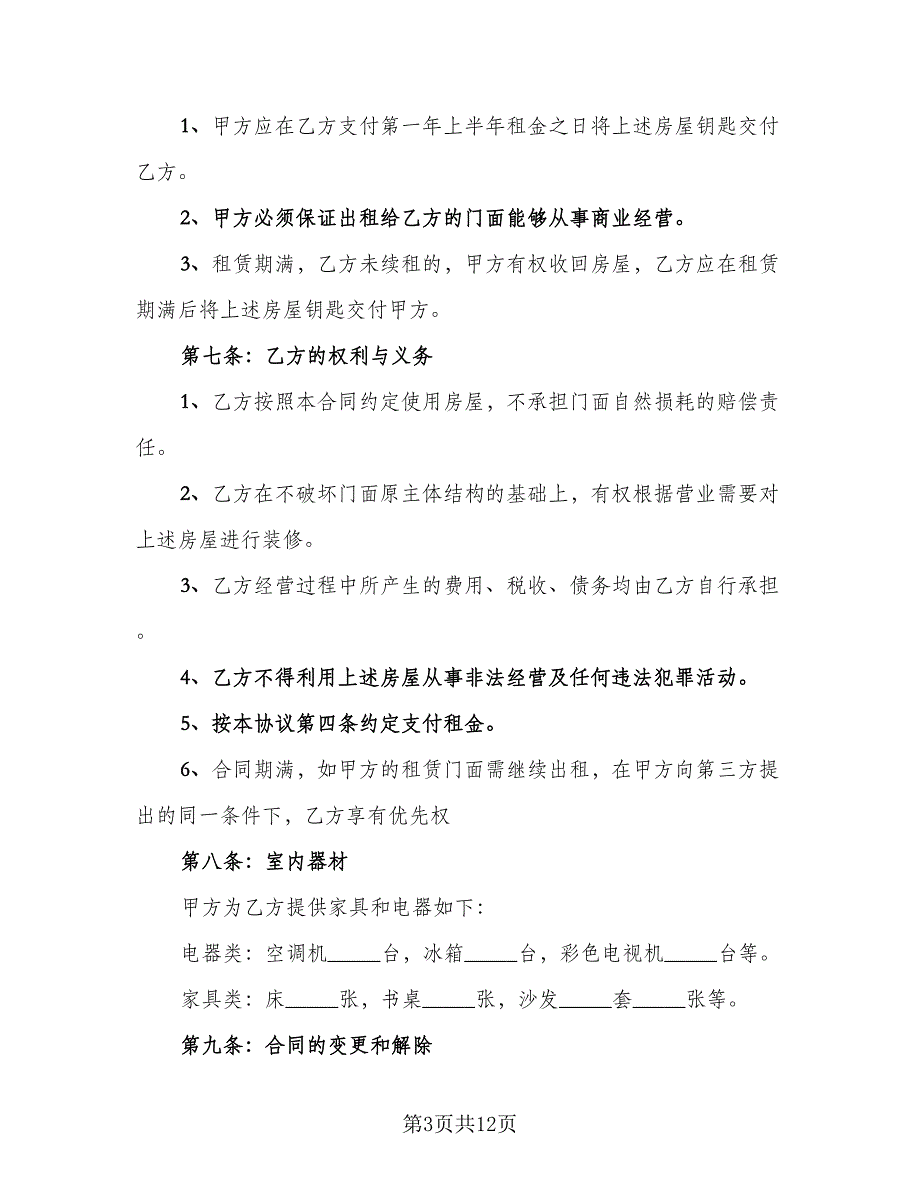 1、甲方应在乙方支付第一年上半年租金之日将上述房屋钥匙交付
乙方。
2、甲方必须保证出租给乙方的门面能够从事商业经营。
3、租赁期满，乙方未续租的，甲方有权收回房屋，乙方应在租赁
期满后将上述房屋钥匙交付甲方。
第七条：乙方的权利与义务
1、乙方按照本合同约定使用房屋，不承担门面自然损耗的赔偿责
任。
2、乙方在不破坏门面原主体结构的基础上，有权根据营业需要对
上述房屋进行装修。
3、乙方经营过程中所产生的费用、税收、债务均由乙方自行承担
。
4、乙方不得利用上述房屋从事非法经营及任何违法犯罪活动。
5、按本协议第四条约定支付租金。
6、合同期满，如甲方的租赁门面需继续出租，在甲方向第三方提
出的同一条件下，乙方享有优先权
第八条：室内器材
甲方为乙方提供家具和电器如下：
电器类：空调机_____台，冰箱_____台，彩色电视机_____台等。
家具类：床_____张，书桌_____张，沙发_____套_____张等。
第九条：合同的变更和解除
第3页共12页